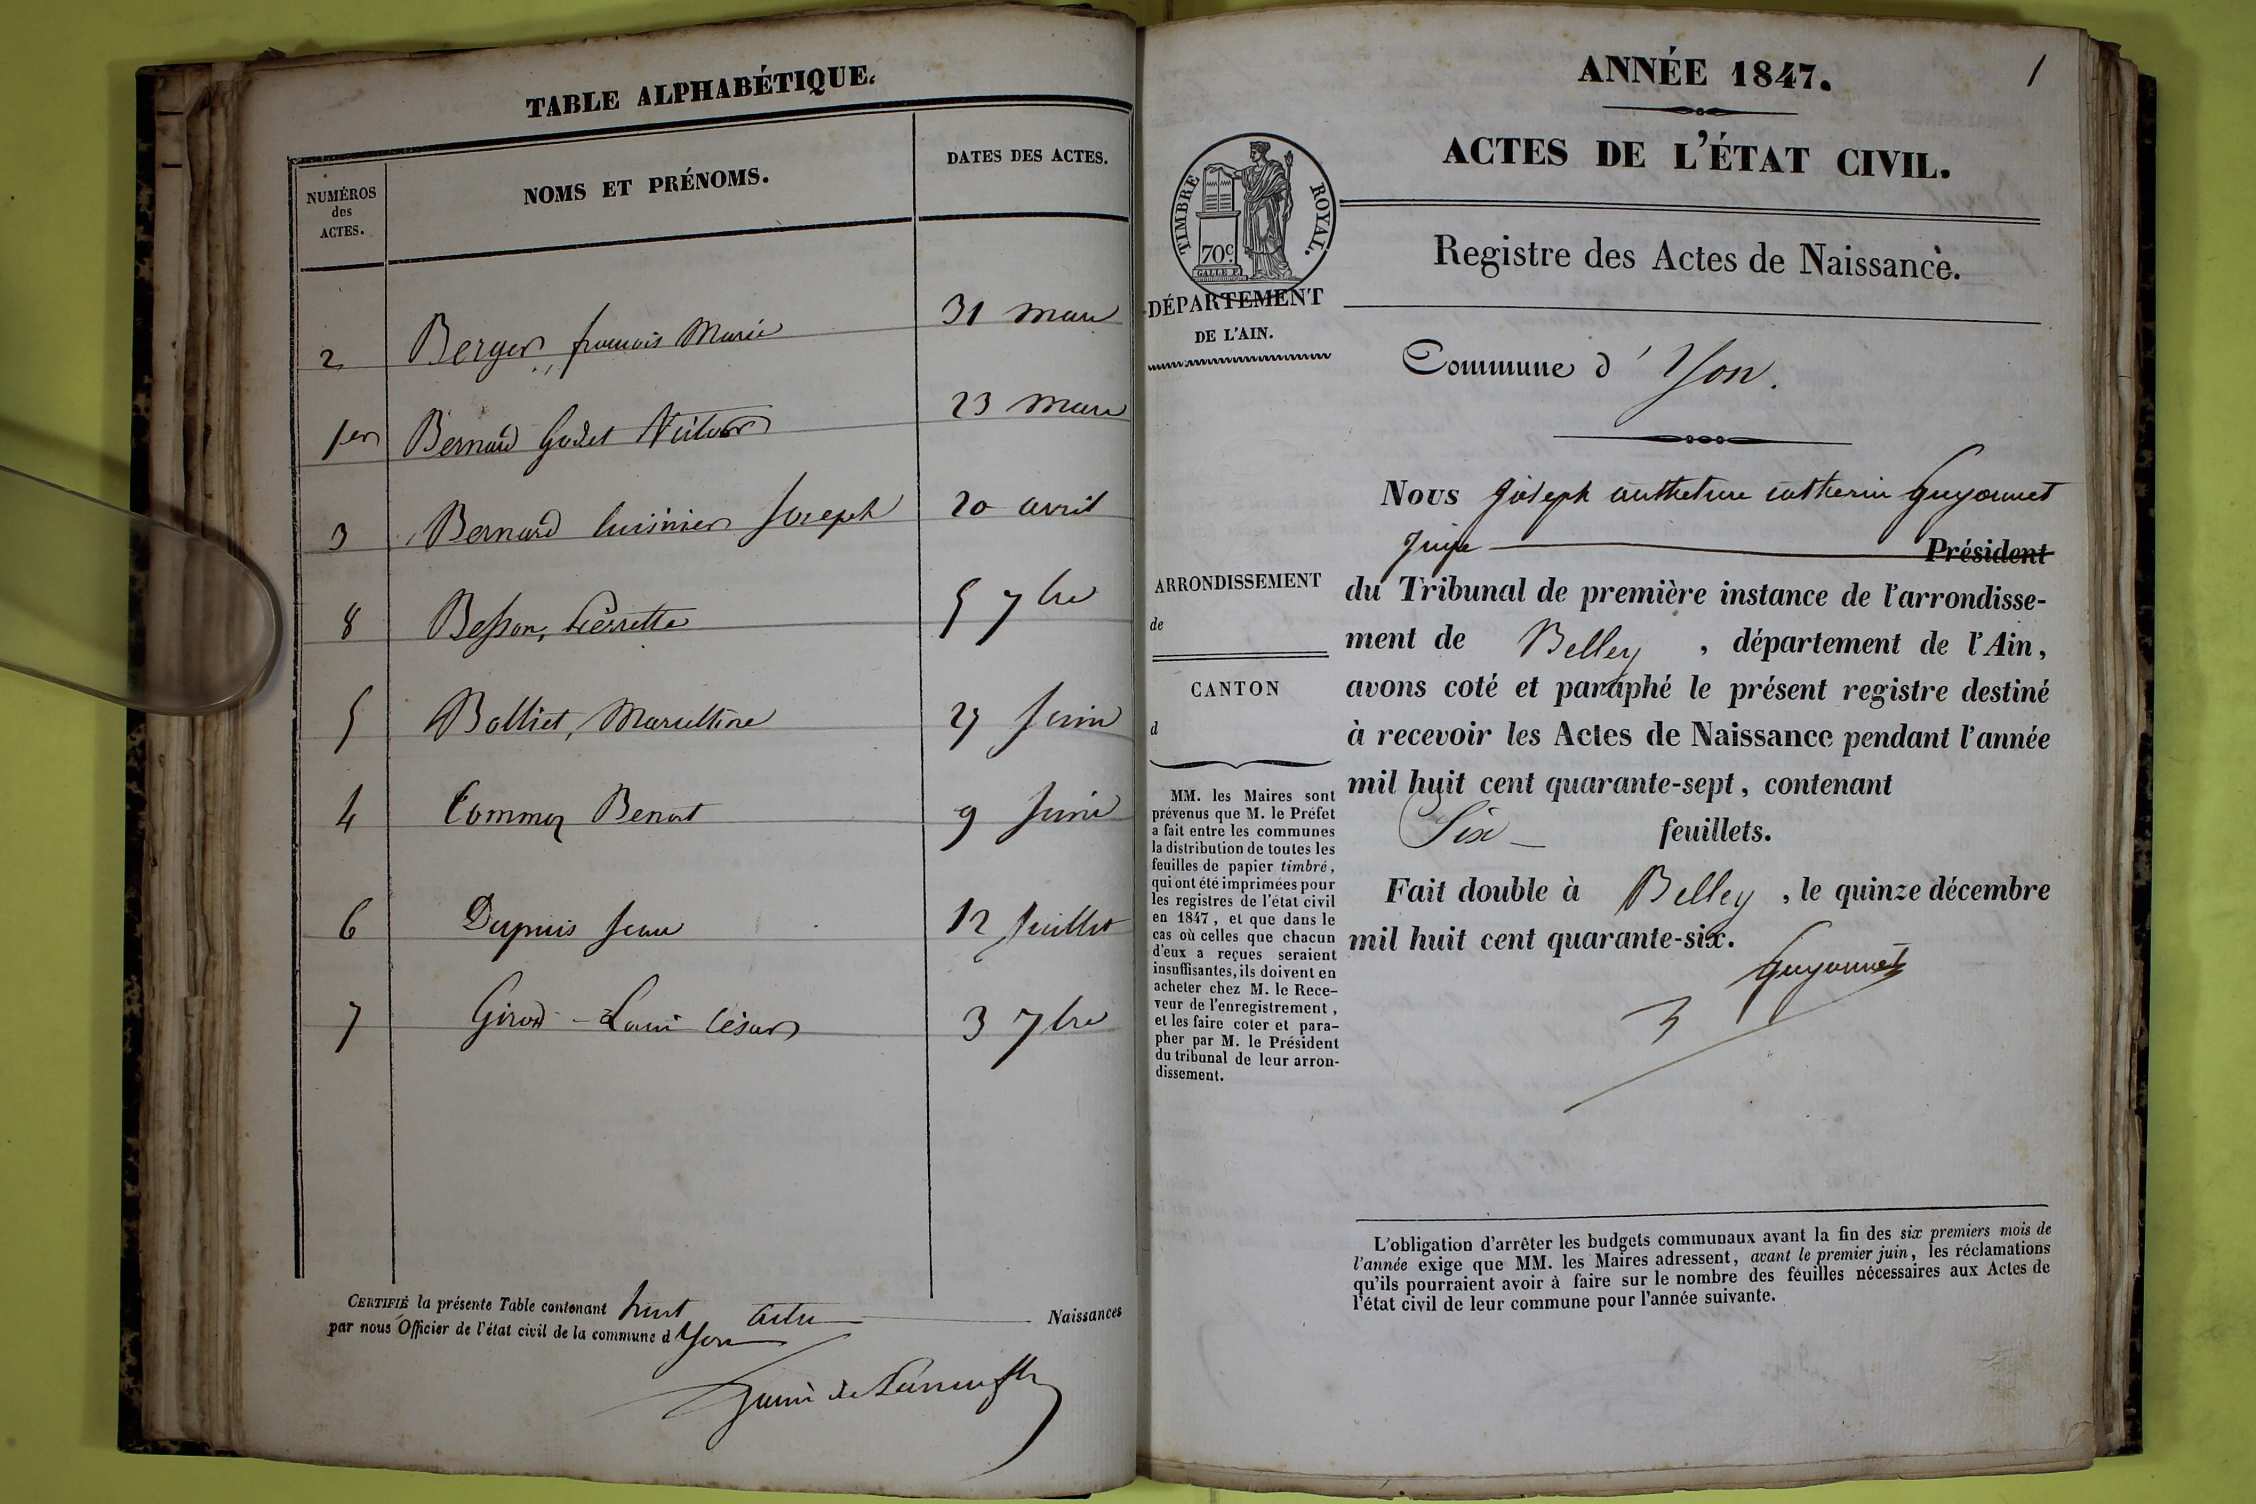 TABLE ALPHABÉTIQUE.
NUMÉROS des ACTES. NOMS ET PRÉNOMS. DATES DES ACTES.
2 Berger, francois Marie 31 mars
1er Bernard Godet Victor 23 mars
3 Bernard Cuisinier Joseph 20 avril
8 Besson, Pierrette 5 7bre
5 Bolliet, Marcelline 27 Juin
4 Commoz Benoit 9 Juin
6 Dupuis Jean 12 Juillet
7 Girod Louis César 3 7bre
CERTIFIÉ la présente Table contenant huit actes Naissances
par nous Officier de l'état civil de la commune d Yon
1
ANNÉE 1847.
ACTES DE L'ÉTAT CIVIL.
TIMBRE ROYAL.
70c
Registre des Actes de Naissance.
DÉPARTEMENT
DE L'AIN.
Commune d'Yon.
Nous Joseph anthelme catherin Guyonnet
Juge Président
du Tribunal de première instance de l'arrondisse-
ment de Belley, département de l'Ain,
avons coté et paraphé le présent registre destiné
à recevoir les Actes de Naissance pendant l'année
mil huit cent quarante-sept, contenant
Six feuillets.
Fait double à Belley, le quinze décembre
mil huit cent quarante-six.
Guyonnet
ARRONDISSEMENT
de
CANTON
d
MM. les Maires sont
prévenus que M. le Préfet
a fait entre les communes
la distribution de toutes les
feuilles de papier timbré,
qui ont été imprimées pour
les registres de l'état civil
en 1847, et que dans le
cas où celles que chacun
d'eux a reçues seraient
insuffisantes, ils doivent en
acheter chez M. le Rece-
veur de l'enregistrement,
et les faire coter et para-
pher par M. le Président
du tribunal de leur arron-
dissement.
L'obligation d'arrêter les budgets communaux avant la fin des six premiers mois de
l'année exige que MM. les Maires adressent, avant le premier juin, les réclamations
qu'ils pourraient avoir à faire sur le nombre des feuilles nécessaires aux Actes de
l'état civil de leur commune pour l'année suivante.